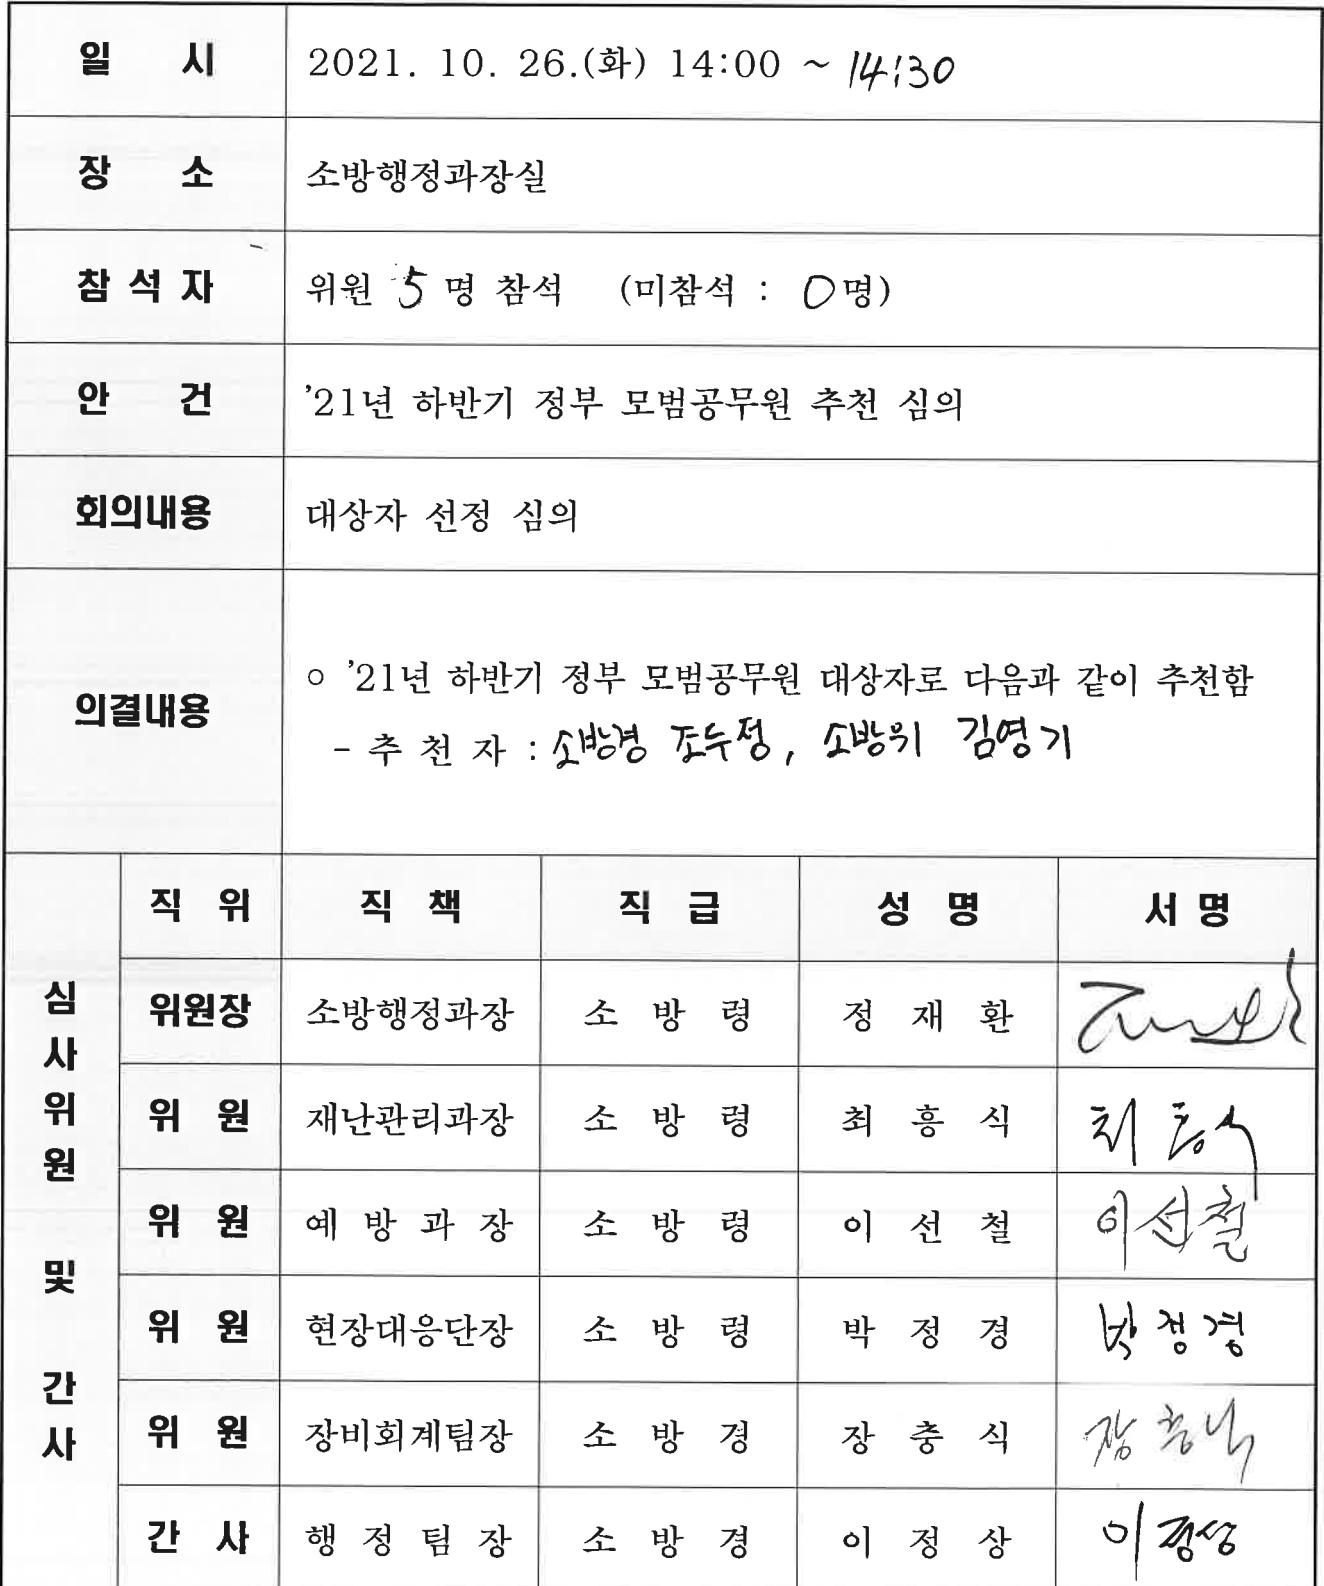 일 시 2021. 10. 26.(화) 14:00 ~ 14:30
장 소 소방행정과장실
참 석 자 위원 5 명 참석 (미참석 : 0명)
안 건 '21년 하반기 정부 모범공무원 추천 심의
회의내용 대상자 선정 심의
의결내용
○ '21년 하반기 정부 모범공무원 대상자로 다음과 같이 추천함
- 추 천 자 : 소방경 조두정, 소방위 김영기
심사위원 및 간사
직 위 직 책 직 급 성 명 서 명
위원장 소방행정과장 소 방 령 정 재 환
위 원 재난관리과장 소 방 령 최 흥 식 최흥식
위 원 예 방 과 장 소 방 령 이 선 철 이선철
위 원 현장대응단장 소 방 령 박 정 경 박정경
위 원 장비회계팀장 소 방 경 장 충 식 장충식
간 사 행 정 팀 장 소 방 경 이 정 상 이정상